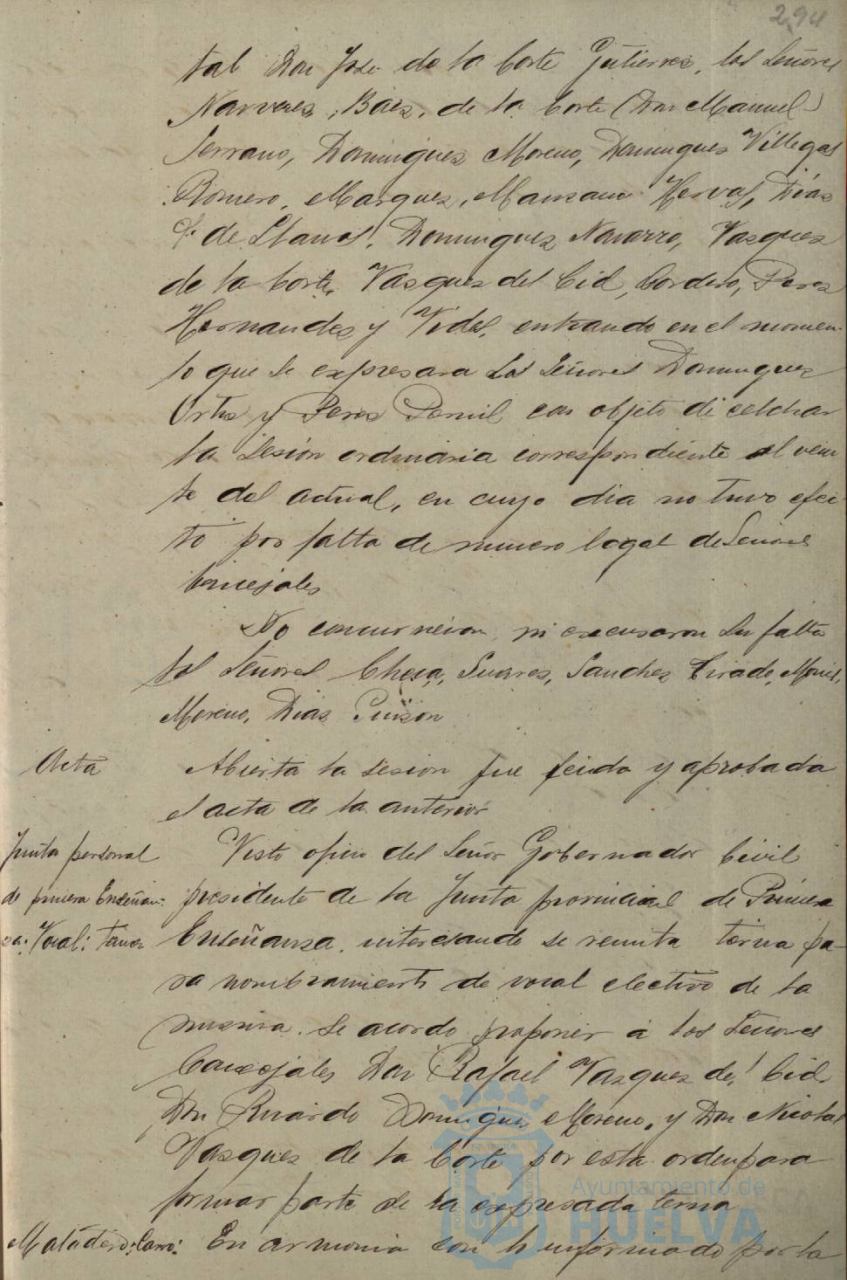 294
tal Don José de la Corte Gutierrez, los Señores
Narvaez, Báez, de la Corte (Don Manuel)
Serrano, Dominguez Moreno, Dominguez Villegas
Romero, Marquez, Manzano Hervas, Diaz
F. de Llanos, Dominguez Navarro, Vazquez
de la Corte, Vazquez del Cid, Cordero, Perez
Hernandez y Vidal, entrando en el momen-
to que se expresara los Señores Dominguez
Ortiz y Perez Pernil con objeto de celebrar
la sesión ordinaria correspondiente al vein
te del actual, en cuyo dia no tuvo efec-
to por falta de numero legal de Señores
Concejales
No concurrieron ni excusaron su falta
los Señores Checa, Suarez, Sanchez Tirado,
Moreno, Diaz Pinzon
Acta
Abierta la sesion fue leida y aprobada
el acta de la anterior
Junta personal
de primera Enseñan-
za: Vocal: terna
Visto oficio del Señor Gobernador Civil
presidente de la Junta provincial de Primera
Enseñanza interesando se remita terna pa-
ra nombramiento de vocal electivo de la
misma se acordo proponer á los Señores
Concejales Don Rafael Vazquez del Cid
Don Ricardo Dominguez Moreno, y Don Nicolas
Vazquez de la Corte por esta orden para
formar parte de la expresada terna
Matadero: Carro:
En armonia con lo informado por la
Ayuntamiento de
HUELVA